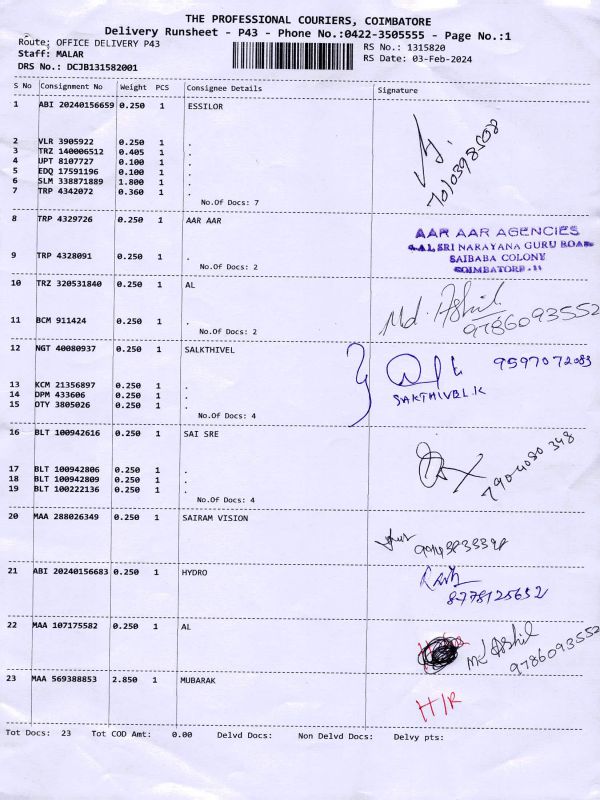 THE PROFESSIONAL COURIERS, COIMBATORE
Delivery Runsheet - P43 - Phone No.:0422-3505555 - Page No.:1
Route: OFFICE DELIVERY P43 RS No.: 1315820
Staff: MALAR RS Date: 03-Feb-2024
DRS No.: DCJB131582001
S No Consignment No Weight PCS Consignee Details Signature
1 ABI 20240156659 0.250 1 ESSILOR
2 VLR 3905922 0.250 1 .
3 TRZ 140006512 0.405 1 .
4 UPT 8107727 0.100 1 .
5 EDQ 17591196 0.100 1 .
6 SLM 338871889 1.800 1 .
7 TRP 4342072 0.360 1 .
No.Of Docs: 7
8 TRP 4329726 0.250 1 AAR AAR
AAR AAR AGENCIES
4-A1, SRI NARAYANA GURU ROAD
SAIBABA COLONY
COIMBATORE-11
9 TRP 4328091 0.250 1 .
No.Of Docs: 2
10 TRZ 320531840 0.250 1 AL
Md. Ashil
9786093552
11 BCM 911424 0.250 1 .
No.Of Docs: 2
12 NGT 40080937 0.250 1 SALKTHIVEL
9597072083
SAKTHIVEL.K
13 KCM 21356897 0.250 1 .
14 DPM 433606 0.250 1 .
15 OTY 3805026 0.250 1 .
No.Of Docs: 4
16 BLT 100942616 0.250 1 SAI SRE
17 BLT 100942806 0.250 1 .
18 BLT 100942809 0.250 1 .
19 BLT 100222136 0.250 1 .
No.Of Docs: 4
20 MAA 288026349 0.250 1 SAIRAM VISION
21 ABI 20240156683 0.250 1 HYDRO
8778125652
22 MAA 107175582 0.250 1 AL
Md Ashil
9786093552
23 MAA 569388853 2.850 1 MUBARAK
H/R
Tot Docs: 23 Tot COD Amt: 0.00 Delvd Docs: Non Delvd Docs: Delvy pts: